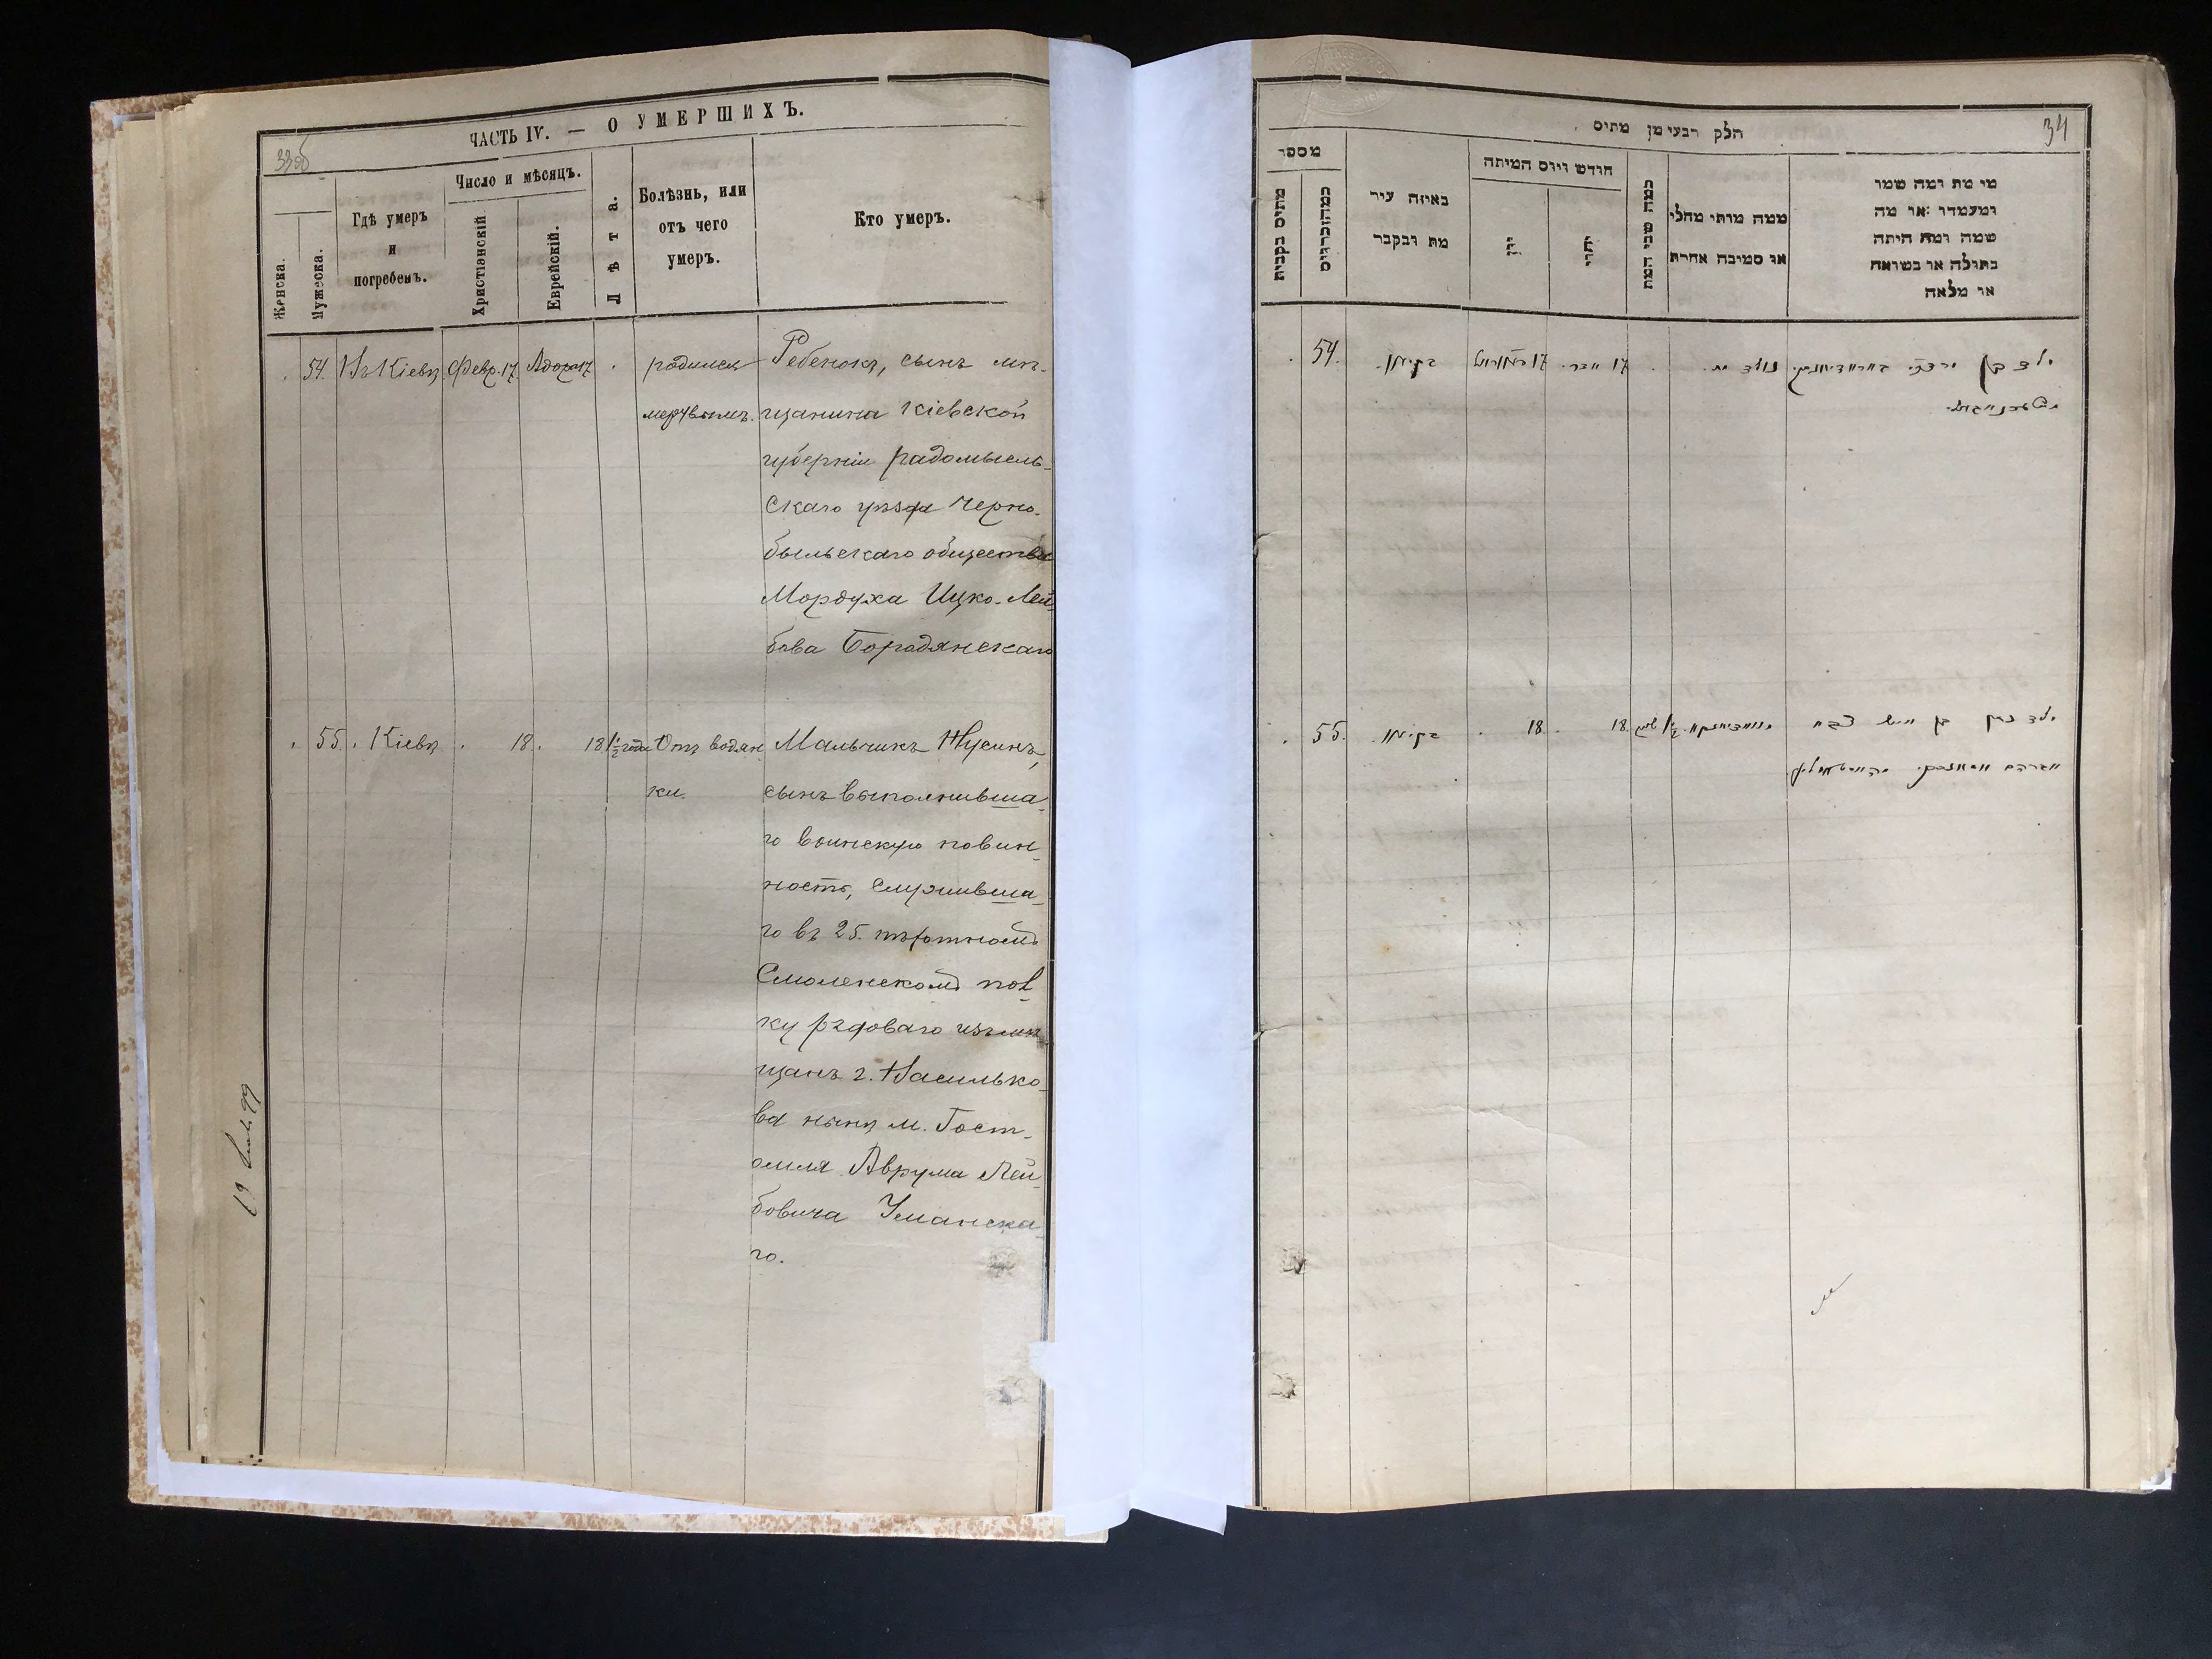 33об
ЧАСТЬ IV. — О УМЕРШИХЪ.
Женска.
Мужеска.
Гдѣ умеръ
и
погребенъ.
Число и мѣсяцъ.
Христіанскій
Еврейскій.
Лѣта.
Болѣзнь, или
отъ чего
умеръ.
Кто умеръ.
54. Въ Кіевѣ Февр. 17. Адоръ 17 родился Ребенокъ, сынъ мѣ-
мертвымъ. щанина Кіевской
губерніи радомысль-
скаго уѣзда Черно-
быльскаго общества
Мордуха Ицко-Лей-
бова Бородянскаго
55. Кіевѣ 18. 18 1½ года Отъ водян Мальчикъ Нусинъ,
ки. сынъ выполнивша-
го воинскую повин-
ность, служивша-
го въ 25. пѣхотномъ
Смоленскомъ пол-
ку рядоваго изъ мѣ-
щанъ г. Василько-
ва нынѣ м. Гост-
омля Аврума Лей-
бовича Уманска-
го.
34
חלק רבעי מן מתים
מספר
מתים נקבות
כמה זכרים
באיזה עיר
מת ונקבר
חודש ויום המיתה
יון
יהודי
כמה שני המת
ממה מותי מחלי
או סמיבה אחרת
מי מת ומה שמו
ומעמדו או מה
שמה ומה היתה
בתולה או בשואה
או מלאה
54. 17 17 ילד בן
55. 18. 18. 1½ ילד נוסן בן איש צבא